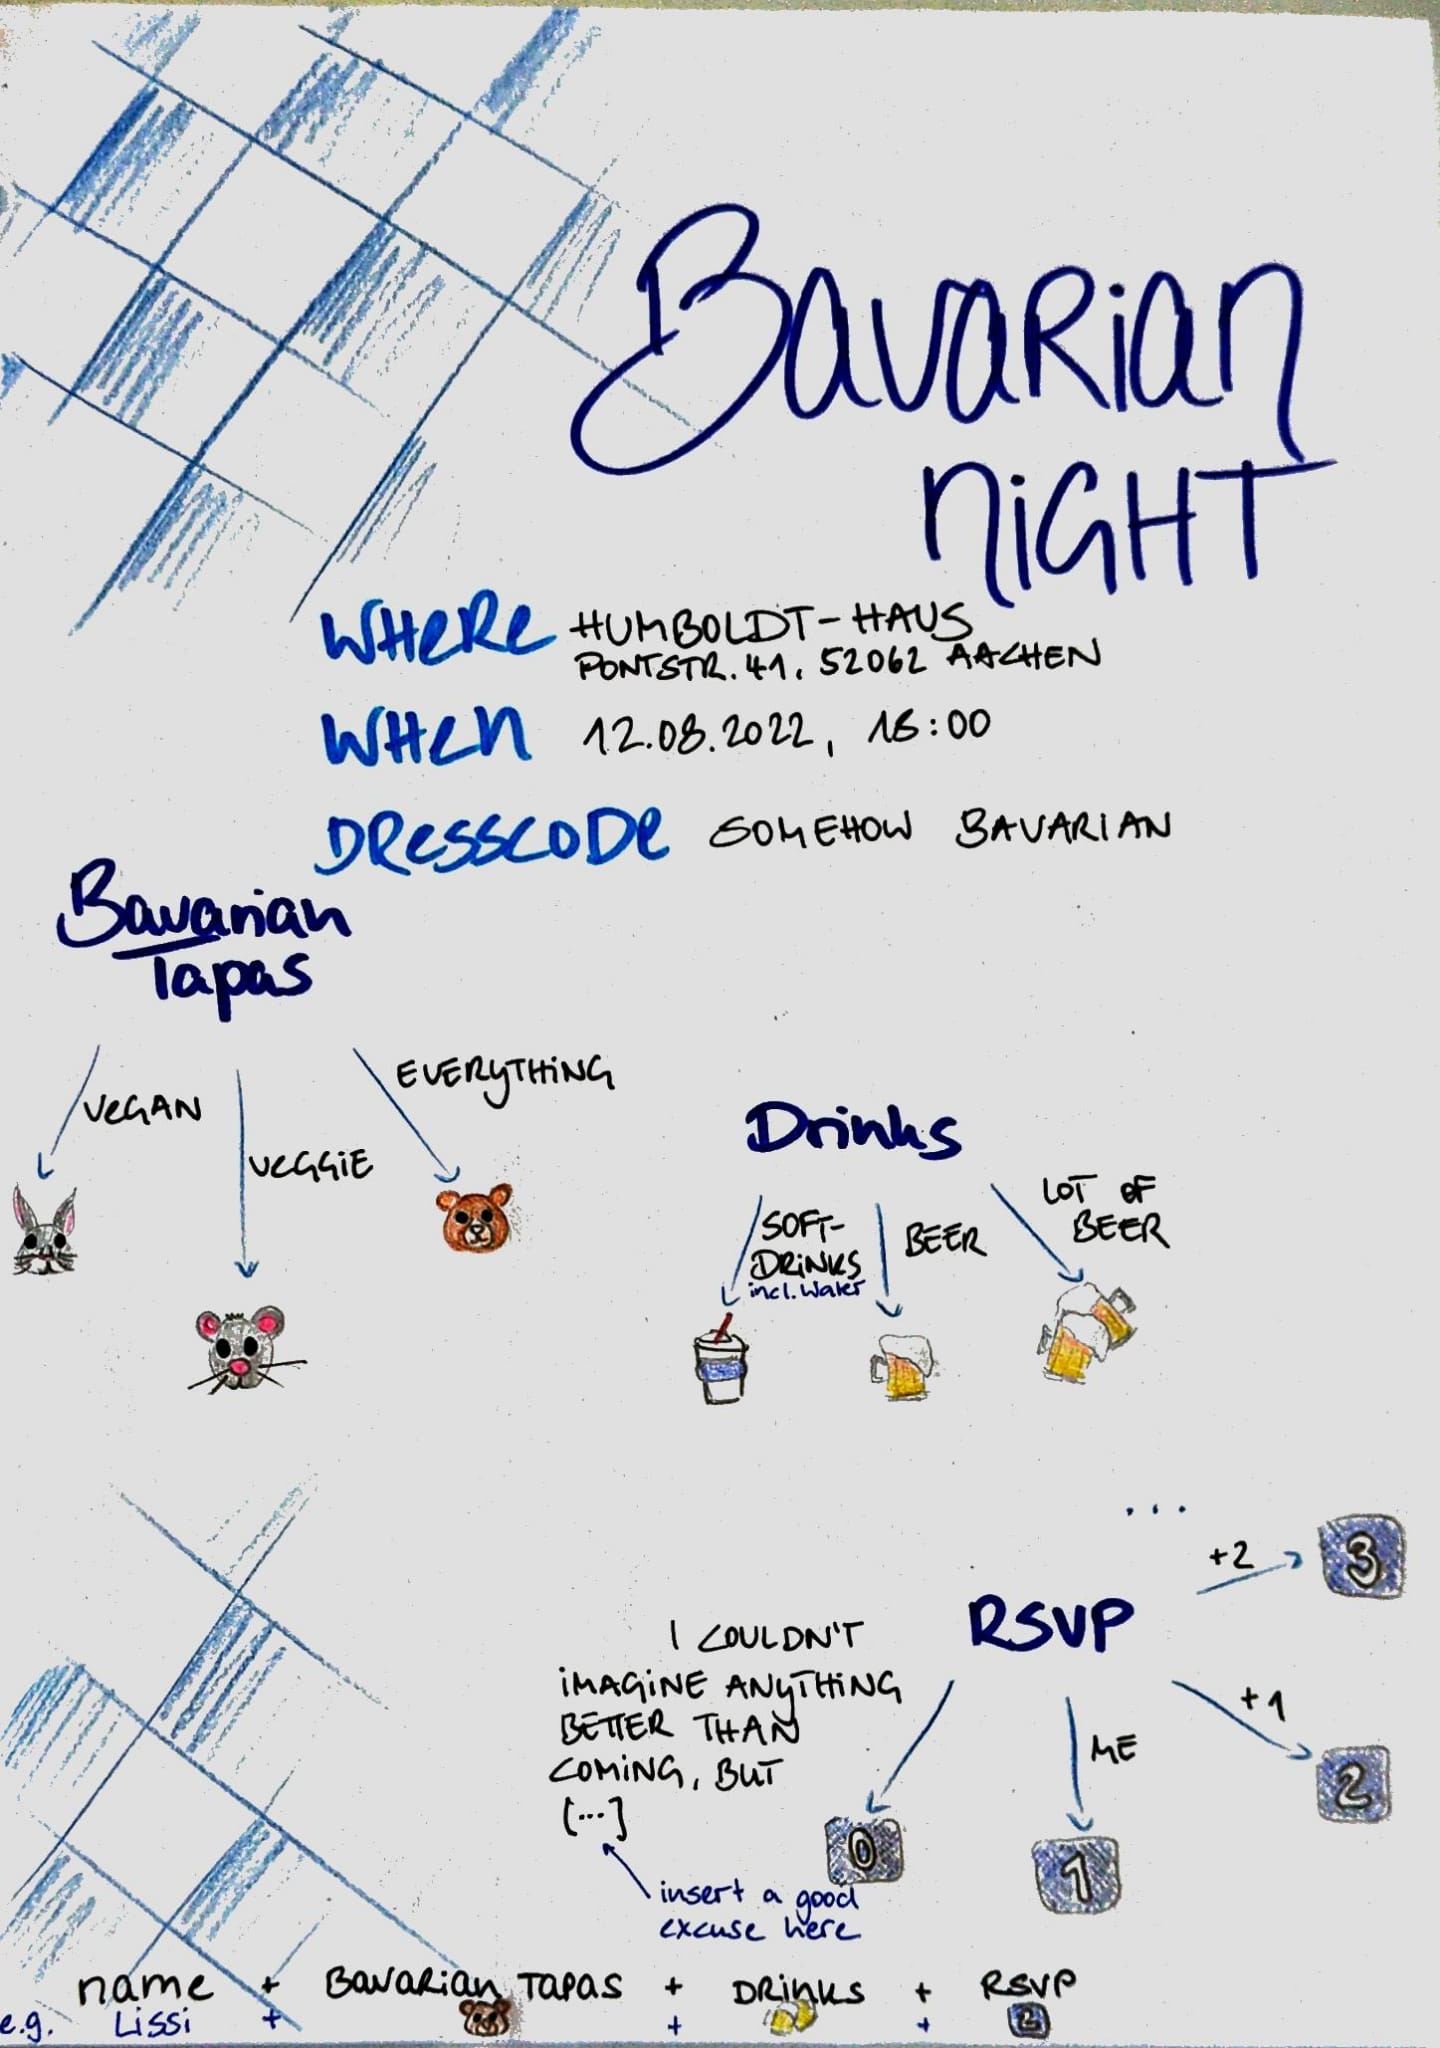 Bavarian
NiGHT
WHeRe HUMBOLDT-HAUS
PONTSTR. 41, 52062 AACHEN
WHen 12.08.2022, 18:00
DRessCODe SOMEHOW BAVARIAN
Bavarian
Tapas
VeGAN
VeGGiE
EVERyTHiNG
Drinks
SOFT-
DRiNKS
incl. Water
BEER
LOT OF
BEER
...
+2
3
RSVP
I COULDN'T
iMAGiNE ANyTHiNG
BETTER THAN
COMiNG, BUT
[...]
+1
2
ME
0
1
insert a good
excuse here
name + BavaRian TaPas + DRinKs + RSVP
e.g. Lissi + + + 2